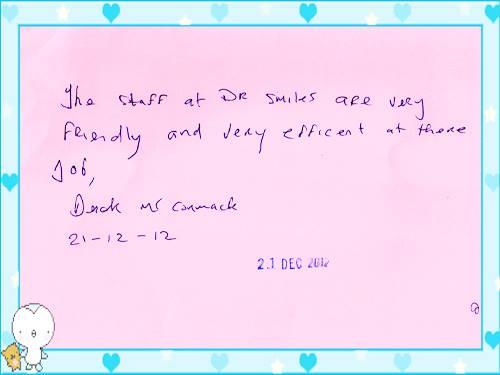 The staff at DR smiles are very
friendly and very efficent at there
Job,
Derek Mc Cormack
21-12-12
21 DEC 2012